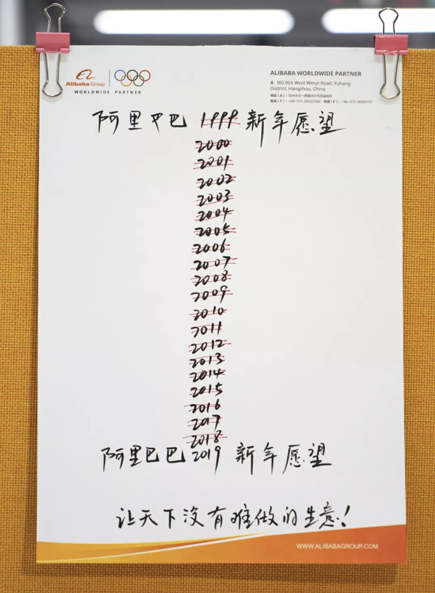 Alibaba Group
WORLDWIDE PARTNER
ALIBABA WORLDWIDE PARTNER
A. NO.969 West Wenyi Road, Yuhang
District, Hangzhou, China
阿里巴巴 1999 新年愿望
2000
2001
2002
2003
2004
2005
2006
2007
2008
2009
2010
2011
2012
2013
2014
2015
2016
2017
2018
阿里巴巴 2019 新年愿望
让天下没有难做的生意!
WWW.ALIBABAGROUP.COM